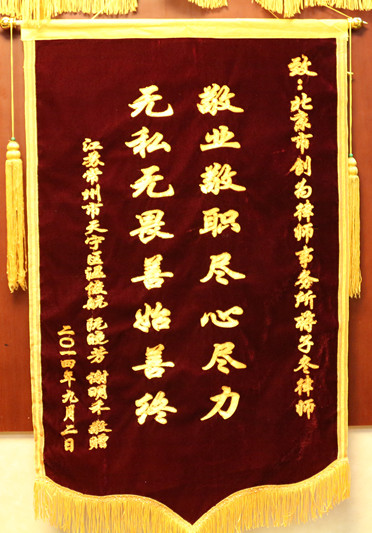 致：北京市创为律师事务所蒋子冬律师
敬业敬职尽心尽力
无私无畏善始善终
江苏常州市天宁区温俊敏 阮晓芳 谢明禾 敬赠
二〇一四年九月二日